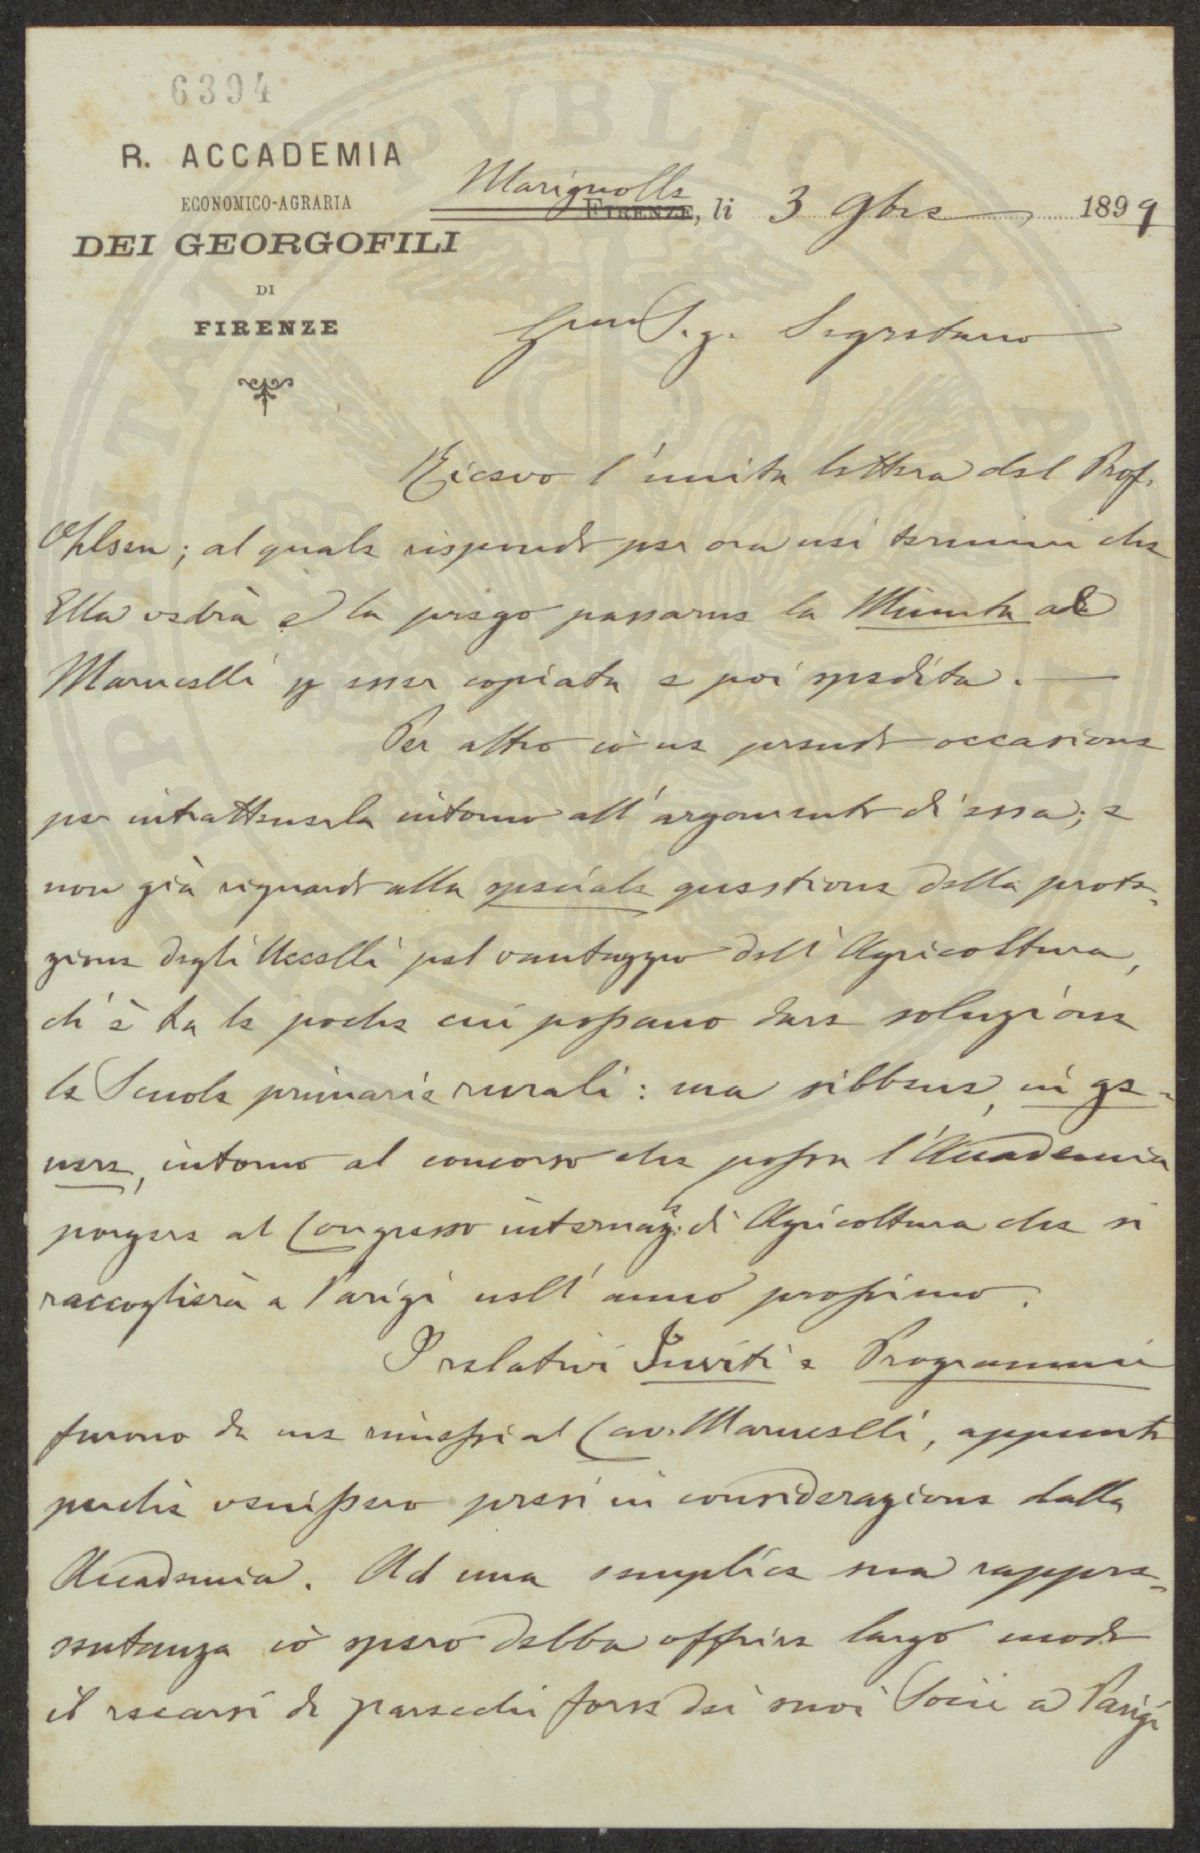 6394
R. ACCADEMIA
ECONOMICO-AGRARIA
DEI GEORGOFILI
DI
FIRENZE
Marignolle
FIRENZE, li 3 9bre 1899
Segretario
Ricevo l'unita lettera del Prof.
Ohlsen; al quale rispondo per ora nei termini che
Ella vedrà e la prego passarne la Minuta al
Marucelli p esser copiata e poi spedita.
Per altro io ne prendo occasione
per intrattenerla intorno all'argomento di essa; e
non già riguardo alla speciale questione della prote-
zione degli Uccelli pel vantaggio dell'Agricoltura,
ch'è tra le poche cui possano dare soluzione
le Scuole primarie rurali: ma sibbene, in ge-
nere, intorno al concorso che possa l'Accademia
porgere al Congresso internaz.le di Agricoltura che si
raccoglierà a Parigi nell'anno prossimo.
I relativi Inviti e Programmi
furono da me rimessi al Cav. Marucelli, appunto
perchè venissero presi in considerazione dalla
Accademia. Ad una semplice sua rappre-
sentanza io spero debba offrire largo modo
il recarsi di parecchi forse dei suoi Socii a Parigi